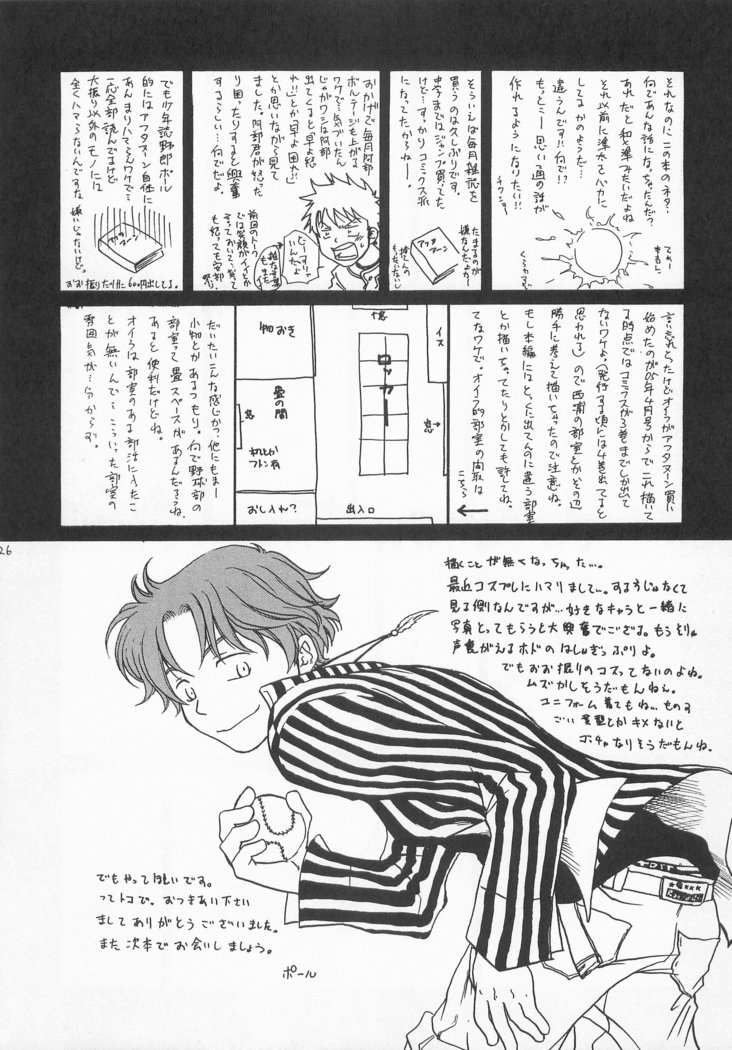 それなのにこの本のネタ…
何であんな話になっちゃったんだ?
あれだと和×準みたいだよね
それ以前に準太でバカに
してるかのような…
違うんです!!何で!?
もっとこー思い通りの話が
作れるようになりたい!!
そういえば毎月雑誌を
買うのは久しぶりです。
中学まではジャンプ買ってた
けど…すっかりコミックス派
になってたからねー。
たまるのが
嫌なんだよねー
捨てんの
もったいない
おかげで毎月阿部
ボルテージも上がる
ワケで…気づいたん
じゃがワシは阿部
出てくると早よ怒
れ!!とか早よ困れ!!
とか思いながら見て
ました。阿部君が怒った
り困ったりすると興奮
するらしい…何でだよ。
前回のトーク
では笑顔がイイとか
言っておいて…笑って
も怒っても安部
祭
でも少年誌野郎ポール
的にはアフタヌーン自体に
あんまりハマらんワケで…
一応全部読んでるけど
大振り以外のモノには
全くハマらないんですな
嫌いじゃないけど。
おお振りだけに60円出してる。
言い忘れとったけどオイラがアフタヌーン買い
始めたのが05年4月号からで、これ描いて
る時点ではコミックスが3巻までしか出て
ないワケよ。(発行する頃には4巻出てると
思われる)ので西浦の部室とか(その辺)
勝手に考えて描いちゃったので注意ね。
もし本編にはとっくに出てんのに違う部室
とか描いちゃってたりとかしても許してね。
てなワケで、オイラ的部室の間取は
こちら
←
イス
窓
窓
ロッカー
出入口
物おき
畳の間
窓
おし入れ?
だいたいこんな感じか?他にもまー
小物とかあるつもり。何で野球部の
部室って畳スペースがあるんだろうね
あると便利だけどね。
オイラは部室のある部活に入ったこ
とが無いんで…こういった部室の
雰囲気が…分からず。
26
描くことが無くなっちゃた…。
最近コスプレにハマりまして…。するうじゃなくて
見る側なんですが…好きなキャラと一緒に
写真とってもらうと大興奮でござる。もうそりゃ
声変がえるホドのはしゃぎっぷりよ。
でもおお振りのコスってないのよね。
ムズかしそうだもんねぇ。
ユニフォーム着てもね…ものす
ごい髪型とかキメないと
ボチャなりそうだもんね。
でもやって欲しいです。
ってトコで、おつきあい下さい
ましてありがとうございました。
また次本でお会いしましょう。
ポール